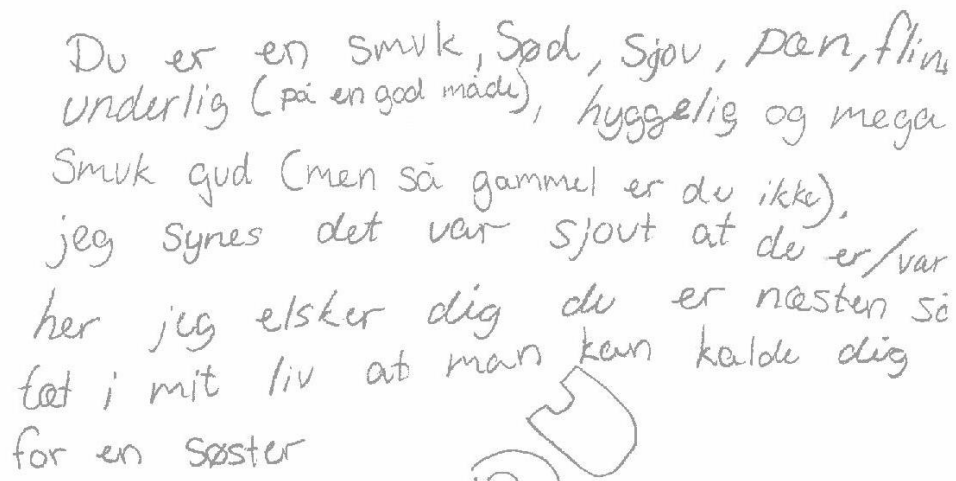 Du er en smuk, Sød, Sjov, pæn,
underlig (på en god måde), hyggelig og mega
Smuk gud (men så gammel er du ikke),
jeg synes det var sjovt at du er/var
her jeg elsker dig du er næsten så
tæt i mit liv at man kan kalde dig
for en søster